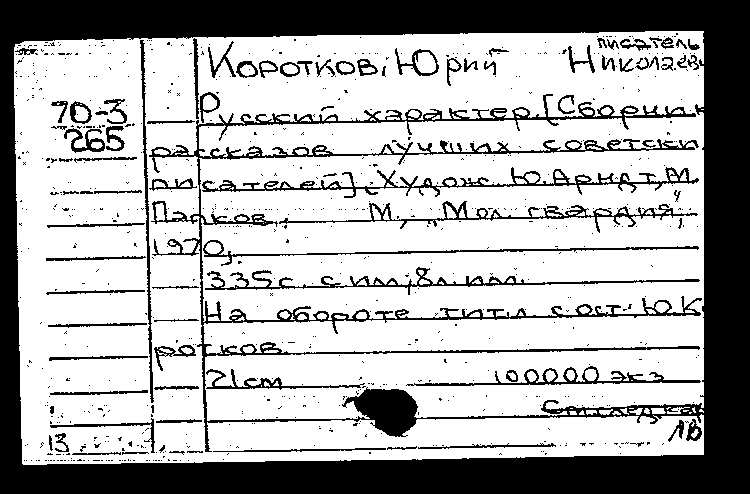 писатель
Коротков, Юрий Николаеви
70-3
265
Русский характер. [Сборник
рассказов лучших советски
писателей]. Худож. Ю. Арндт, М.
Папков. М., „Мол. гвардия",
1970.
335 с. с ил.; 8 л. ил.
На обороте тит. л. сост. Ю. Ко
ротков.
21 см 100000 экз
См след ка
13
1В